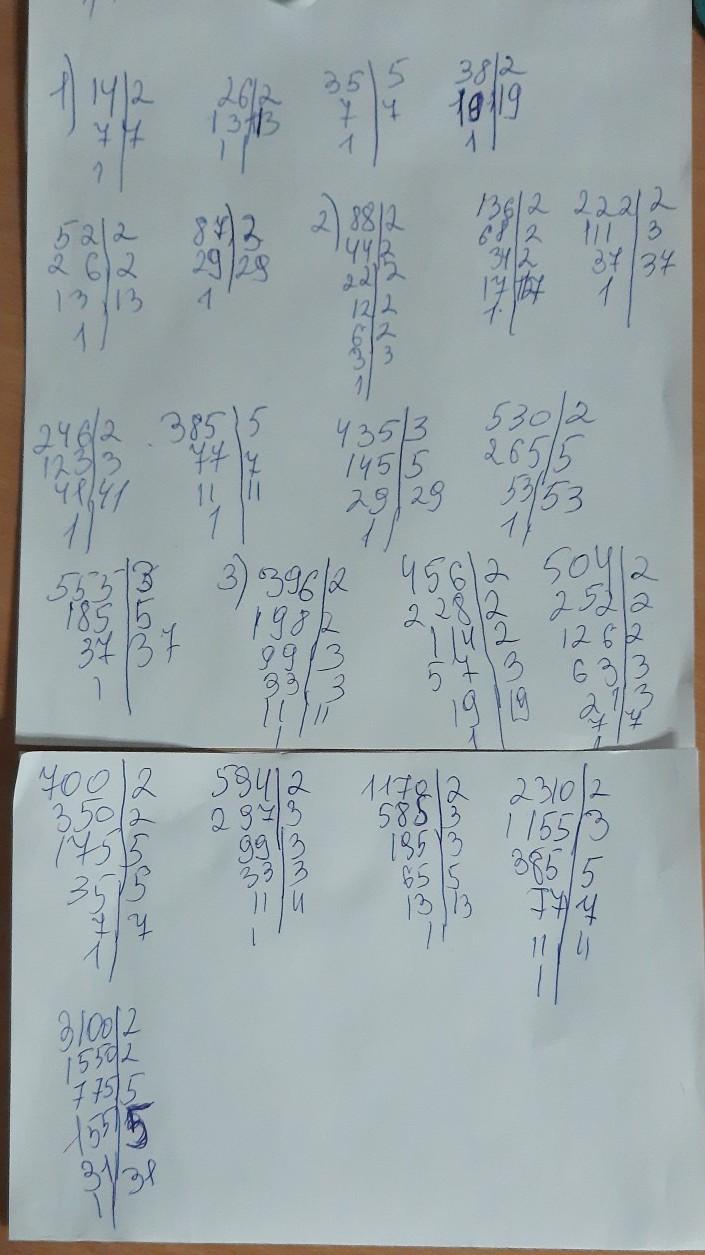 1) 14|2 26|2 35|5 38|2
7|7 13|13 7|7 19|19
1| 1| 1| 1|
52|2 87|3 2) 88|2 136|2 222|2
26|2 29|29 44|2 68|2 111|3
13|13 1| 22|2 34|2 37|37
1| 12|2 17|17 1|
6|2 1|
3|3
1|
246|2 385|5 435|3 530|2
123|3 77|7 145|5 265|5
41|41 11|11 29|29 53|53
1| 1| 1| 1|
555|3 3) 396|2 456|2 504|2
185|5 198|2 228|2 252|2
37|37 99|3 114|2 126|2
1| 33|3 57|3 63|3
11|11 19|19 21|3
1| 1| 7|7
1|
700|2 594|2 1170|2 2310|2
350|2 297|3 585|3 1155|3
175|5 99|3 195|3 385|5
35|5 33|3 65|5 77|7
7|7 11|11 13|13 11|11
1| 1| 1| 1|
3100|2
1550|2
775|5
155|5
31|31
1|